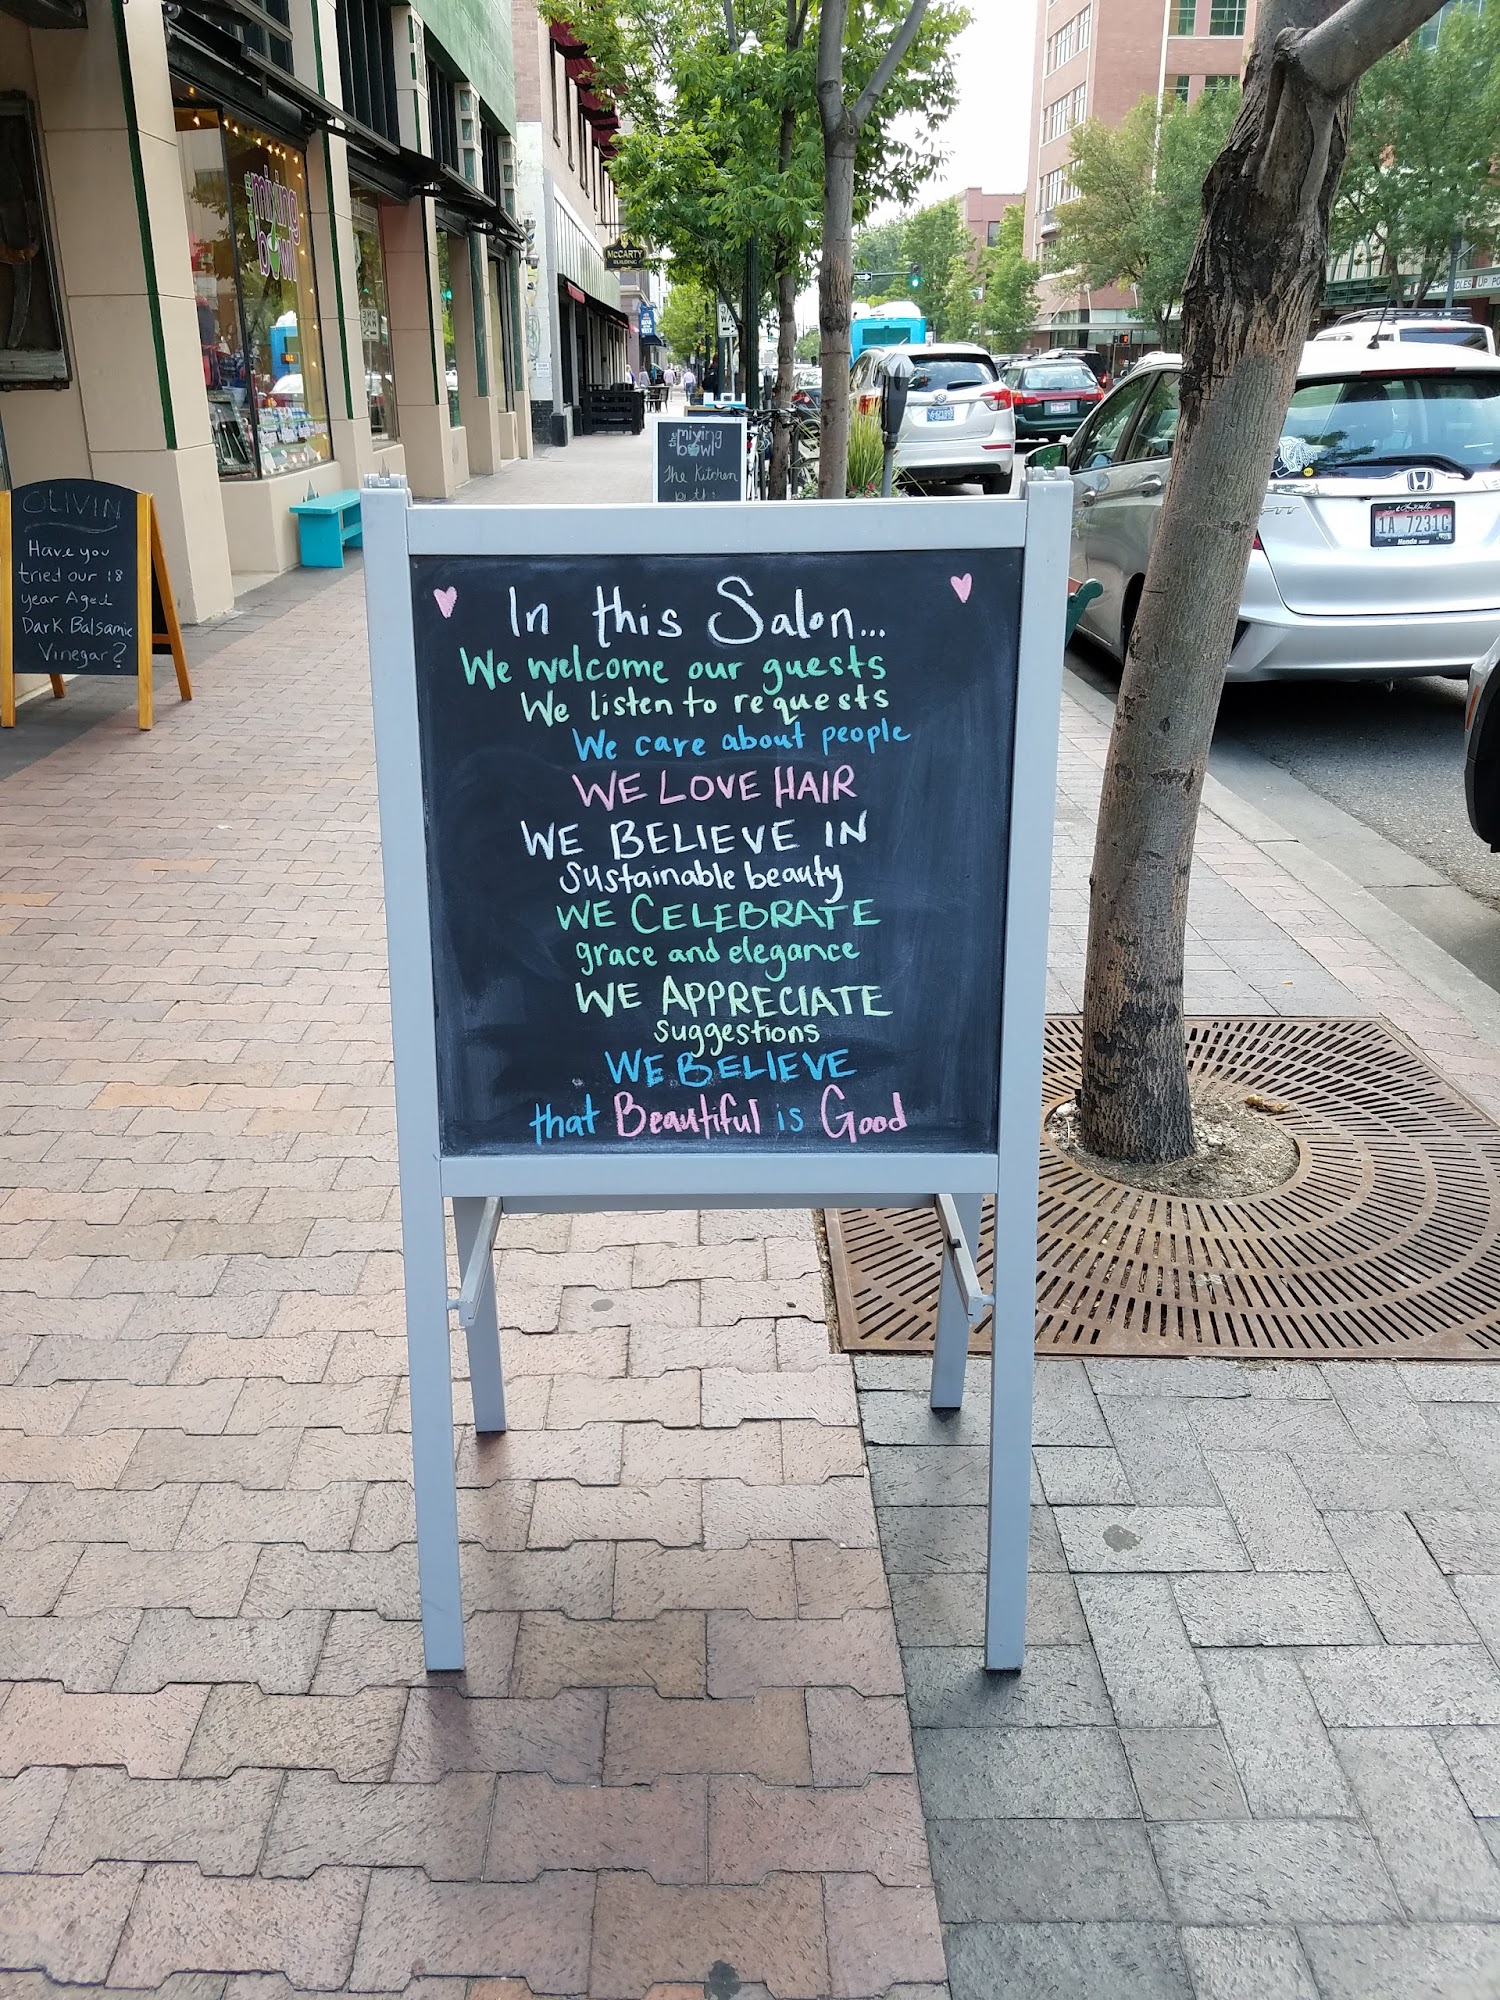 In this Salon...
We welcome our guests
We listen to requests
We care about people
WE LOVE HAIR
WE BELIEVE IN
Sustainable beauty
WE CELEBRATE
grace and elegance
WE APPRECIATE
suggestions
WE BELIEVE
that Beautiful is Good
OLIVIN
Have you
tried our 18
year Aged
Dark Balsamic
Vinegar?
the
mixing
bowl
the
mixing
bowl
The Kitchen
McCARTY
BUILDING
ONE
WAY
1A 7231C
Honda
UP